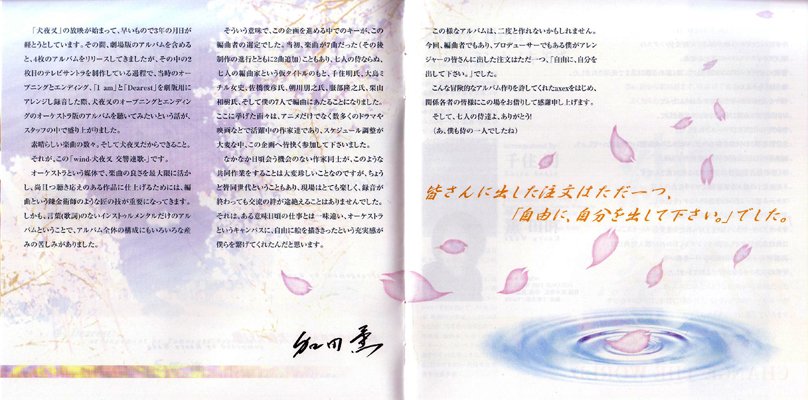 「犬夜叉」の放映が始まって、早いもので3年の月日が
経とうとしています。その間、劇場版のアルバムを含める
と、4枚のアルバムをリリースしてきましたが、その中の2
枚目のテレビサントラを制作している過程で、当時のオー
プニングとエンディング、「I am」と「Dearest」を劇版用に
アレンジし録音した際、犬夜叉のオープニングとエンディン
グのオーケストラ版のアルバムを聴いてみたいという話が、
スタッフの中で盛り上がりました。
素晴らしい楽曲の数々。そして犬夜叉だからできること。
それが、この「wind-犬夜叉 交響連歌」です。
オーケストラという媒体で、楽曲の良さを最大限に活か
し、尚且つ聴き応えのある作品に仕上げるためには、編
曲という錬金術師のような匠の技が重要になってきます。
しかも、言葉(歌詞)のないインストゥルメンタルだけのアル
バムということで、アルバム全体の構成にもいろいろな産
みの苦しみがありました。
そういう意味で、この企画を進める中でのキーが、この
編曲者の選定でした。当初、楽曲が7曲だった(その後
制作の進行とともに2曲追加)こともあり、七人の侍ならぬ、
七人の編曲家という仮タイトルのもと、千住明氏、大島ミ
チル女史、佐橋俊彦氏、朝川朋之氏、服部隆之氏、栗山
和樹氏、そして僕の7人で編曲にあたることになりました。
ここに挙げた面々は、アニメだけでなく数多くのドラマや
映画などで活躍中の作家達であり、スケジュール調整が
大変な中、この企画へ皆快く参加して下さいました。
なかなか日頃会う機会のない作家同士が、このような
共同作業をすることは大変珍しいことなのですが、ちょう
ど皆同世代ということもあり、現場はとても楽しく、録音が
終わっても交流の絆が途絶えることはありませんでした。
それは、ある意味日頃の仕事とは一味違い、オーケストラ
というキャンバスに、自由に絵を描ききったという充実感が
僕らを繋げてくれたんだと思います。
和田薫
この様なアルバムは、二度と作れないかもしれません。
今回、編曲者でもあり、プロデューサーでもある僕がアレン
ジャーの皆さんに出した注文はただ一つ、「自由に、自分を
出して下さい。」でした。
こんな冒険的なアルバム作りを許してくれたavexをはじめ、
関係各者の皆様にこの場をお借りして感謝申し上げます。
そして、七人の侍達よ、ありがとう!
(あ、僕も侍の一人でしたね)
皆さんに出した注文はただ一つ、
「自由に、自分を出して下さい。」でした。